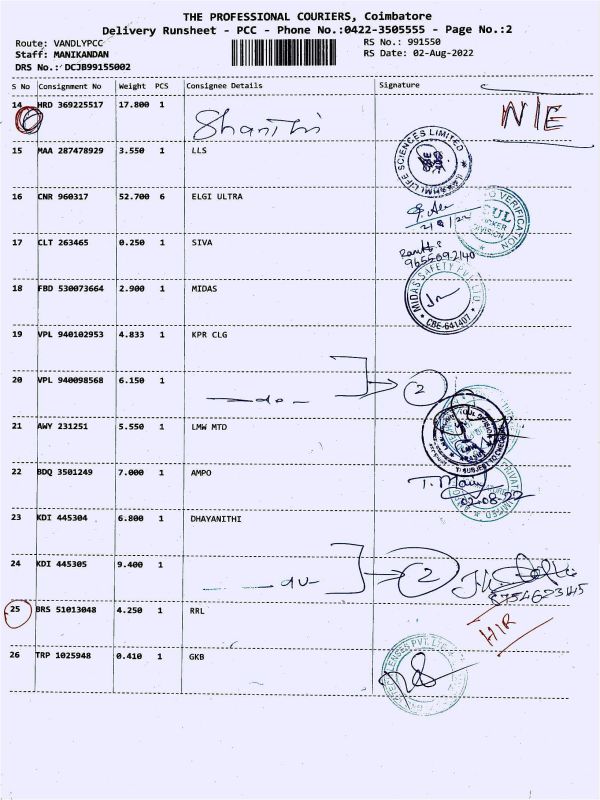 THE PROFESSIONAL COURIERS, Coimbatore
Delivery Runsheet - PCC - Phone No.:0422-3505555 - Page No.:2
Route: VANDLYPCC
RS No.: 991550
Staff: MANIKANDAN
RS Date: 02-Aug-2022
DRS No.: DCJB99155002
S No Consignment No Weight PCS Consignee Details Signature
14 HRD 369225517 17.800 1 Shanthi N/E
15 MAA 287478929 3.550 1 LLS
LIFE SCIENCES LIMITED
16 CNR 960317 52.700 6 ELGI ULTRA
VERIFICATION
DIVISION
17 CLT 263465 0.250 1 SIVA
9655692140
18 FBD 530073664 2.900 1 MIDAS
MIDAS SAFETY PVT. LTD.
CBE-641407
19 VPL 940102953 4.833 1 KPR CLG
20 VPL 940098568 6.150 1 -do- 2
21 AWY 231251 5.550 1 LMW MTD
22 BDQ 3501249 7.000 1 AMPO
02-08-22
23 KDI 445304 6.800 1 DHAYANITHI
24 KDI 445305 9.400 1 -do- 2
25 BRS 51013048 4.250 1 RRL H/R
26 TRP 1025948 0.410 1 GKB